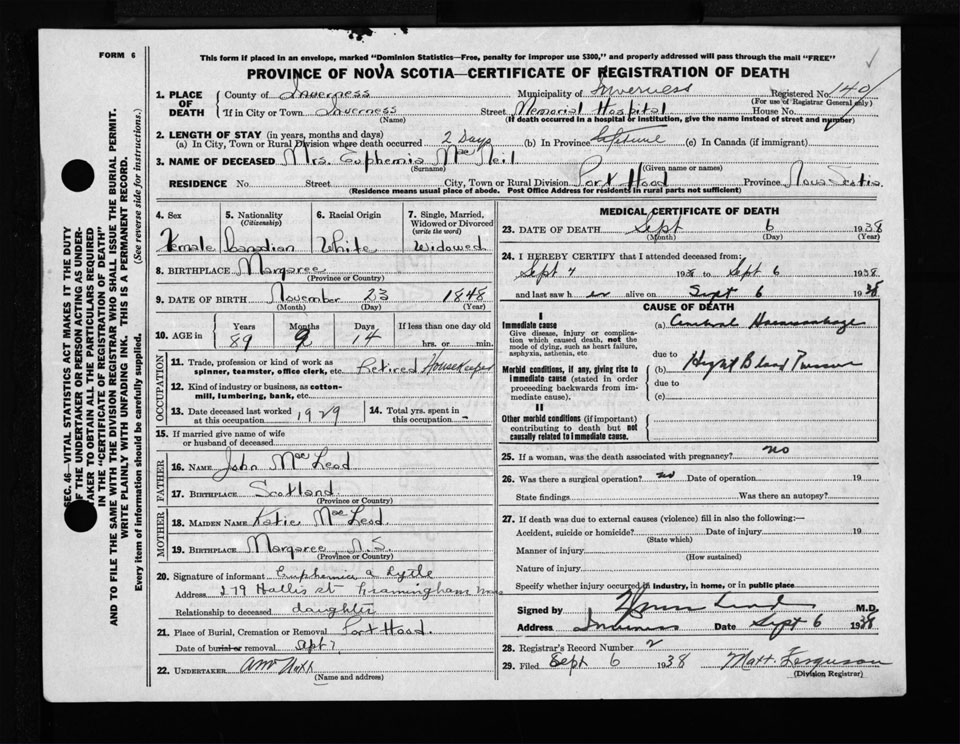 FORM 6
This form if placed in an envelope, marked "Dominion Statistics—Free, penalty for improper use $300," and properly addressed will pass through the mail "FREE"
PROVINCE OF NOVA SCOTIA—CERTIFICATE OF REGISTRATION OF DEATH
SEC. 46—VITAL STATISTICS ACT MAKES IT THE DUTY
OF THE UNDERTAKER OR PERSON ACTING AS UNDER-
TAKER TO OBTAIN ALL THE PARTICULARS REQUIRED
IN THE "CERTIFICATE OF REGISTRATION OF DEATH"
AND TO FILE THE SAME WITH THE DIVISION REGISTRAR WHO SHALL ISSUE THE BURIAL PERMIT.
WRITE PLAINLY WITH UNFADING INK. THIS IS A PERMANENT RECORD.
Every item of information should be carefully supplied. (See reverse side for instructions.)
1. PLACE OF DEATH
County of Inverness Municipality of Inverness Registered No. 140
(For use of Registrar General only)
If in City or Town Inverness Street Memorial Hospital House No.
(Name) (If death occurred in a hospital or institution, give the name instead of street and number)
2. LENGTH OF STAY (in years, months and days)
(a) In City, Town or Rural Division where death occurred 2 Days (b) In Province Lifetime (c) In Canada (if immigrant)
3. NAME OF DECEASED Mrs. Euphemia Mac Neil
(Surname) (Given name or names)
RESIDENCE No. Street City, Town or Rural Division Port Hood Province Nova Scotia
(Residence means usual place of abode. Post Office Address for residents in rural parts not sufficient)
4. Sex 5. Nationality (Citizenship) 6. Racial Origin 7. Single, Married, Widowed or Divorced (write the word)
Female Canadian White Widowed
8. BIRTHPLACE Margaree
(Province or County)
9. DATE OF BIRTH November 23 1848
(Month) (Day) (Year)
10. AGE in Years Months Days If less than one day old
89 9 14 hrs. or min.
OCCUPATION
11. Trade, profession or kind of work as spinner, teamster, office clerk, etc. Retired Housekeeper
12. Kind of industry or business, as cotton-mill, lumbering, bank, etc.
13. Date deceased last worked at this occupation 1929 14. Total yrs. spent in this occupation -
15. If married give name of wife or husband of deceased
FATHER
16. NAME John Mac Leod
17. BIRTHPLACE Scotland
(Province or Country)
MOTHER
18. MAIDEN NAME Katie Mac Leod
19. BIRTHPLACE Margaree N.S.
(Province or Country)
20. Signature of informant Euphemia A Lytle
Address 279 Hollis st Framingham Mass
Relationship to deceased daughter
21. Place of Burial, Cremation or Removal Port Hood.
Date of burial or removal Sept 7,
22. UNDERTAKER
(Name and address)
MEDICAL CERTIFICATE OF DEATH
23. DATE OF DEATH Sept 6 1938
(Month) (Day) (Year)
24. I HEREBY CERTIFY that I attended deceased from:
Sept 4 1938 to Sept 6 1938
and last saw h er alive on Sept 6 1938
CAUSE OF DEATH
I
Immediate cause
Give disease, injury or complication which caused death, not the mode of dying, such as heart failure, asphyxia, asthenia, etc
(a) Cerebral Haemorrhage
due to
Morbid conditions, if any, giving rise to immediate cause (stated in order proceeding backwards from immediate cause).
(b) Hight Blood Pressure
due to
(c)
II
Other morbid conditions (if important) contributing to death but not causally related to immediate cause.
25. If a woman, was the death associated with pregnancy? no
26. Was there a surgical operation? no Date of operation 19
State findings Was there an autopsy?
27. If death was due to external causes (violence) fill in also the following:—
Accident, suicide or homicide? Date of injury 19
(State which)
Manner of injury
(How sustained)
Nature of injury
Specify whether injury occurred in industry, in home, or in public place
Signed by M.D.
Address Inverness Date Sept 6 1938
28. Registrar's Record Number 2
29. Filed Sept 6 1938 Matt. Ferguson
(Division Registrar)